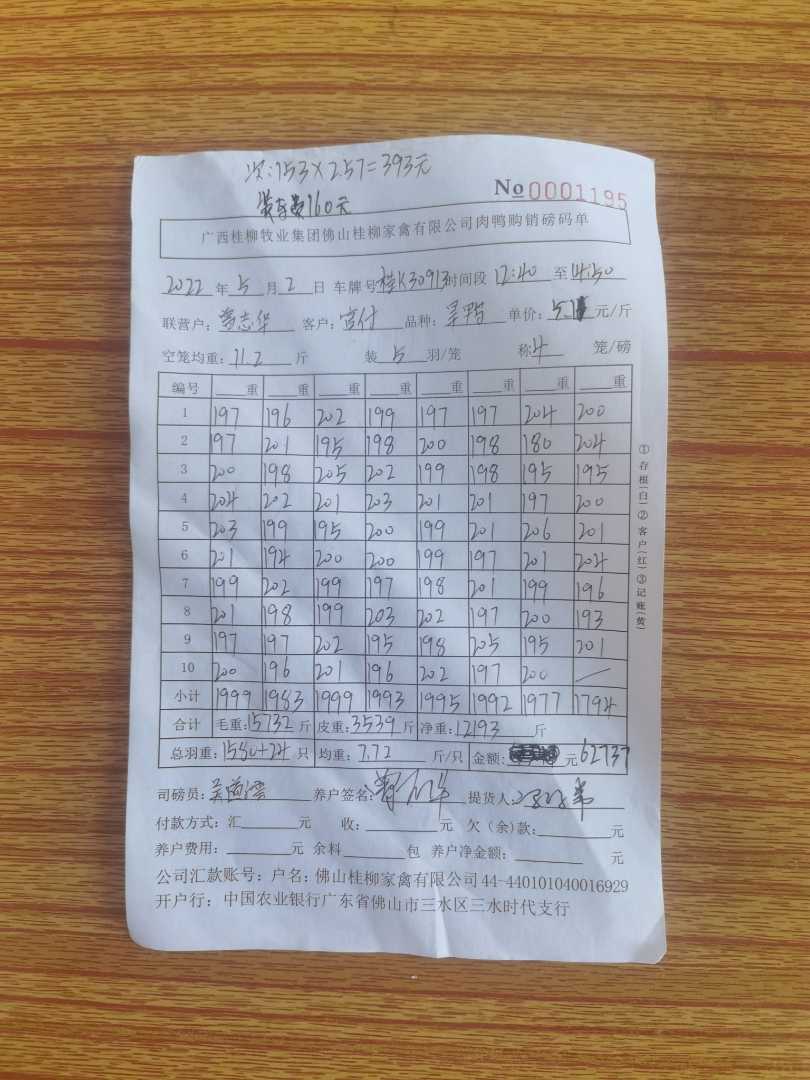 次:153×2.57=393元
装车费160元
No 0001195
广西桂柳牧业集团佛山桂柳家禽有限公司肉鸭购销磅码单
2022年5月2日 车牌号桂K30913时间段12:40至14:50
联营户: 志华 客户: 宫付 品种: 单价: 5.1 元/斤
空笼均重: 11.2 斤 装 5 羽/笼 称 4 笼/磅
编号 重 重 重 重 重 重 重 重
1 197 196 202 199 197 197 204 200
2 197 201 195 198 200 198 180 204
3 200 198 205 202 199 198 195 195
4 204 202 201 203 201 201 197 200
5 203 199 195 200 199 201 206 201
6 201 194 200 200 199 197 201 204
7 199 202 199 197 198 201 199 196
8 201 198 199 203 202 197 200 193
9 197 197 202 195 198 205 195 201
10 200 196 201 196 202 197 200 —
小计 1999 1983 1999 1993 1995 1992 1977 1794
合计 毛重: 15732 斤 皮重: 3539 斤 净重: 12193 斤
总羽重: 1580+24 只 均重: 7.72 斤/只 金额: 元 62737
司磅员: 养户签名: 提货人:
付款方式: 汇 元 收: 元 欠(余)款: 元
养户费用: 元 余料 包 养户净金额: 元
公司汇款账号: 户名: 佛山桂柳家禽有限公司 44-440101040016929
开户行: 中国农业银行广东省佛山市三水区三水时代支行
①存根(白)②客户(红)③记账(黄)